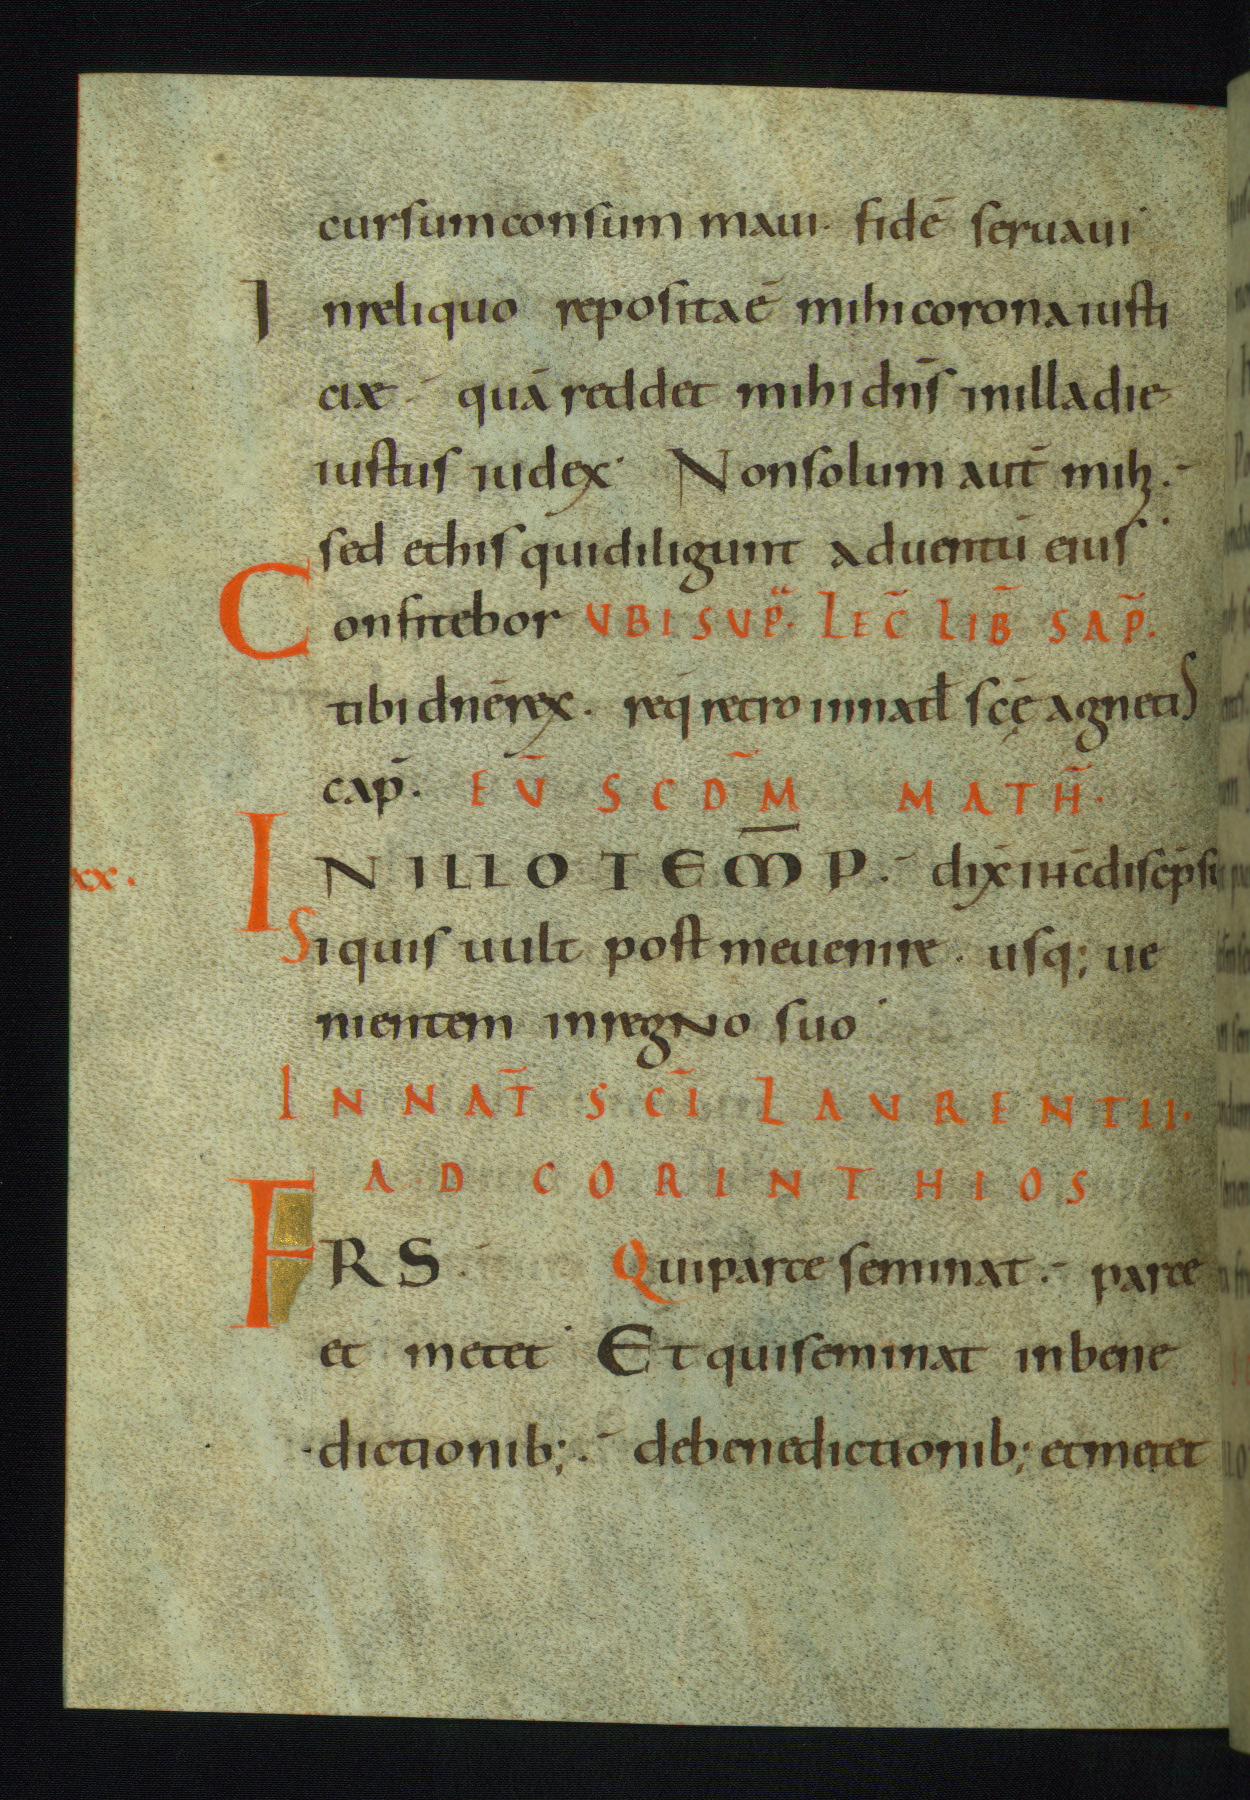 cursum consummaui. fidē seruaui
Inreliquo reposita ē mihi corona iusti
ciæ. quā reddet mihi dn̄s inilla die
iustus iudex. Nonsolum aut̄ mihi.
sed ethis quidiligunt aduentū eius.
Confitebor VBI SUP̄. LEC̄ LIB̄ SAP̄.
tibi dnērex. req̄ retro innatł scę̄ agnetis
cap̄. EV̄ SCDM̄ MATH̄.
xx. INILLO TEM̄P. dix̄ ih̄c discip̄ suis
Siquis uult post meuenire. usq; ue
nientem inregno suo.
INNAT̄ SCĪ LAURENTII.
AD CORINTHIOS
FRS. Quiparce seminat. parce
et metet. Et quiseminat inbene
dictionib;. debenedictionib; etmetet